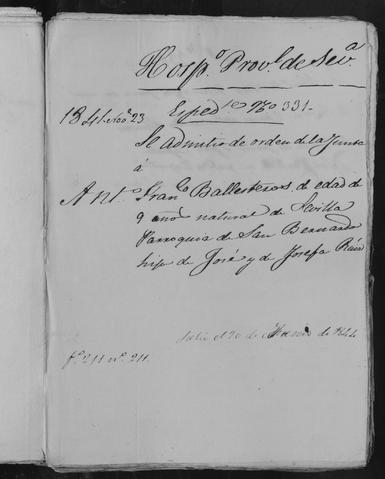 Hosp.º Prov.l de Sev.a
1841. Nov.e 23 Esped.te Nº 331.
Se admitió de orden de la Junta
á
Ant.º Fran.co Ballesteros, de edad de
9 años natural de Sevilla
Parroquia de San Bernardo
hijo de José y de Josefa
Salió el 20 de Marzo de 1844
fº 211 nº 211.